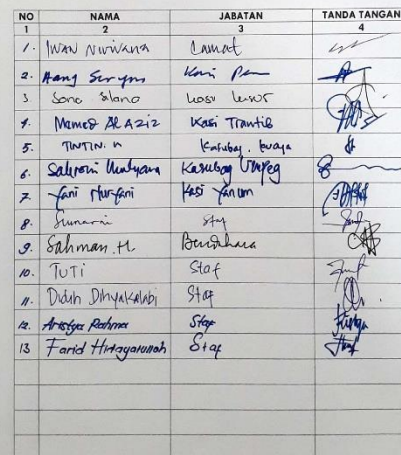 NO NAMA JABATAN TANDA TANGAN
1 2 3 4
1. IWAN Nirwana Camat
2. Aang Suryna Kasi
3 Kasi
4. Mamed Al Aziz Kasi Trantib
5. TINTIN. N Kasubag.
6. Sahroni Mulyana Kasubag Umpeg
7. Yani Nuryani Kasi Yanum
8. Sunarni Staf
9. Sahman. H. Bendahara
10. TUTI Staf
11. Diduh Dihyakalabi Staf
12. Aristya Rahma Staf
13 Farid Hidayatullah Staf